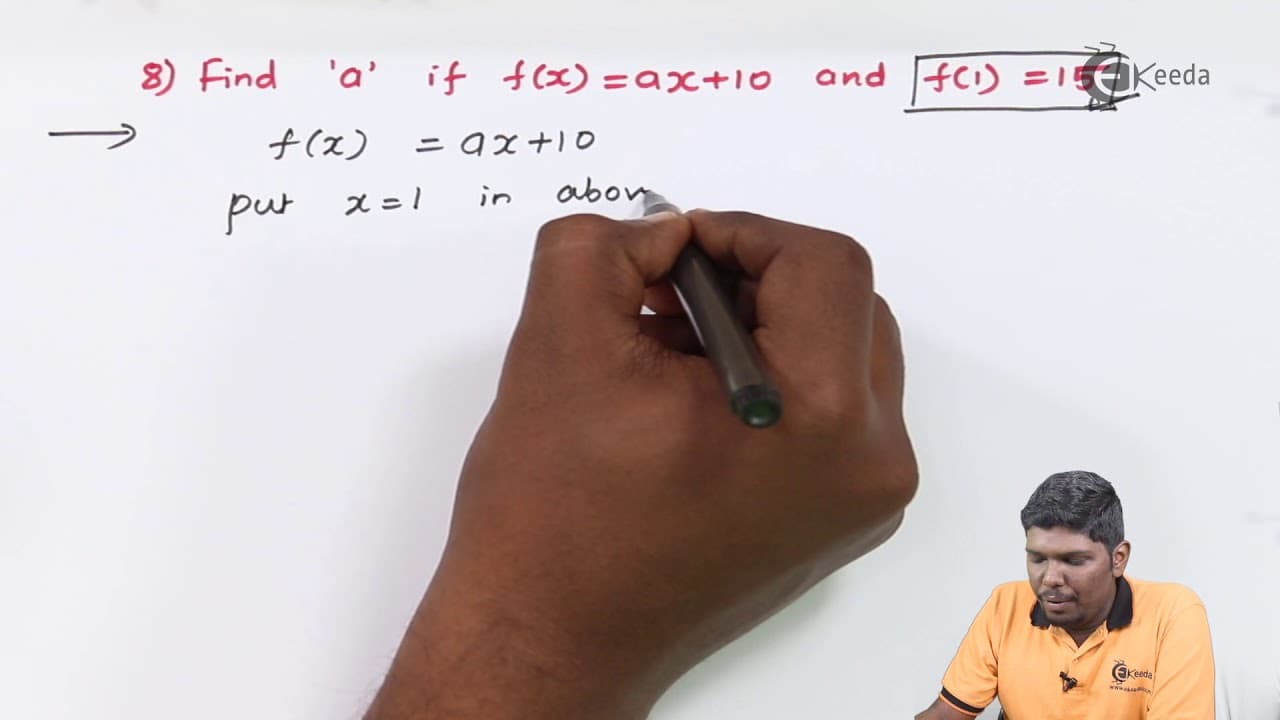 8) Find 'a' if f(x) = ax+10 and f(1) = 15
Keeda
f(x) = ax+10
put x=1 in abov
Keeda